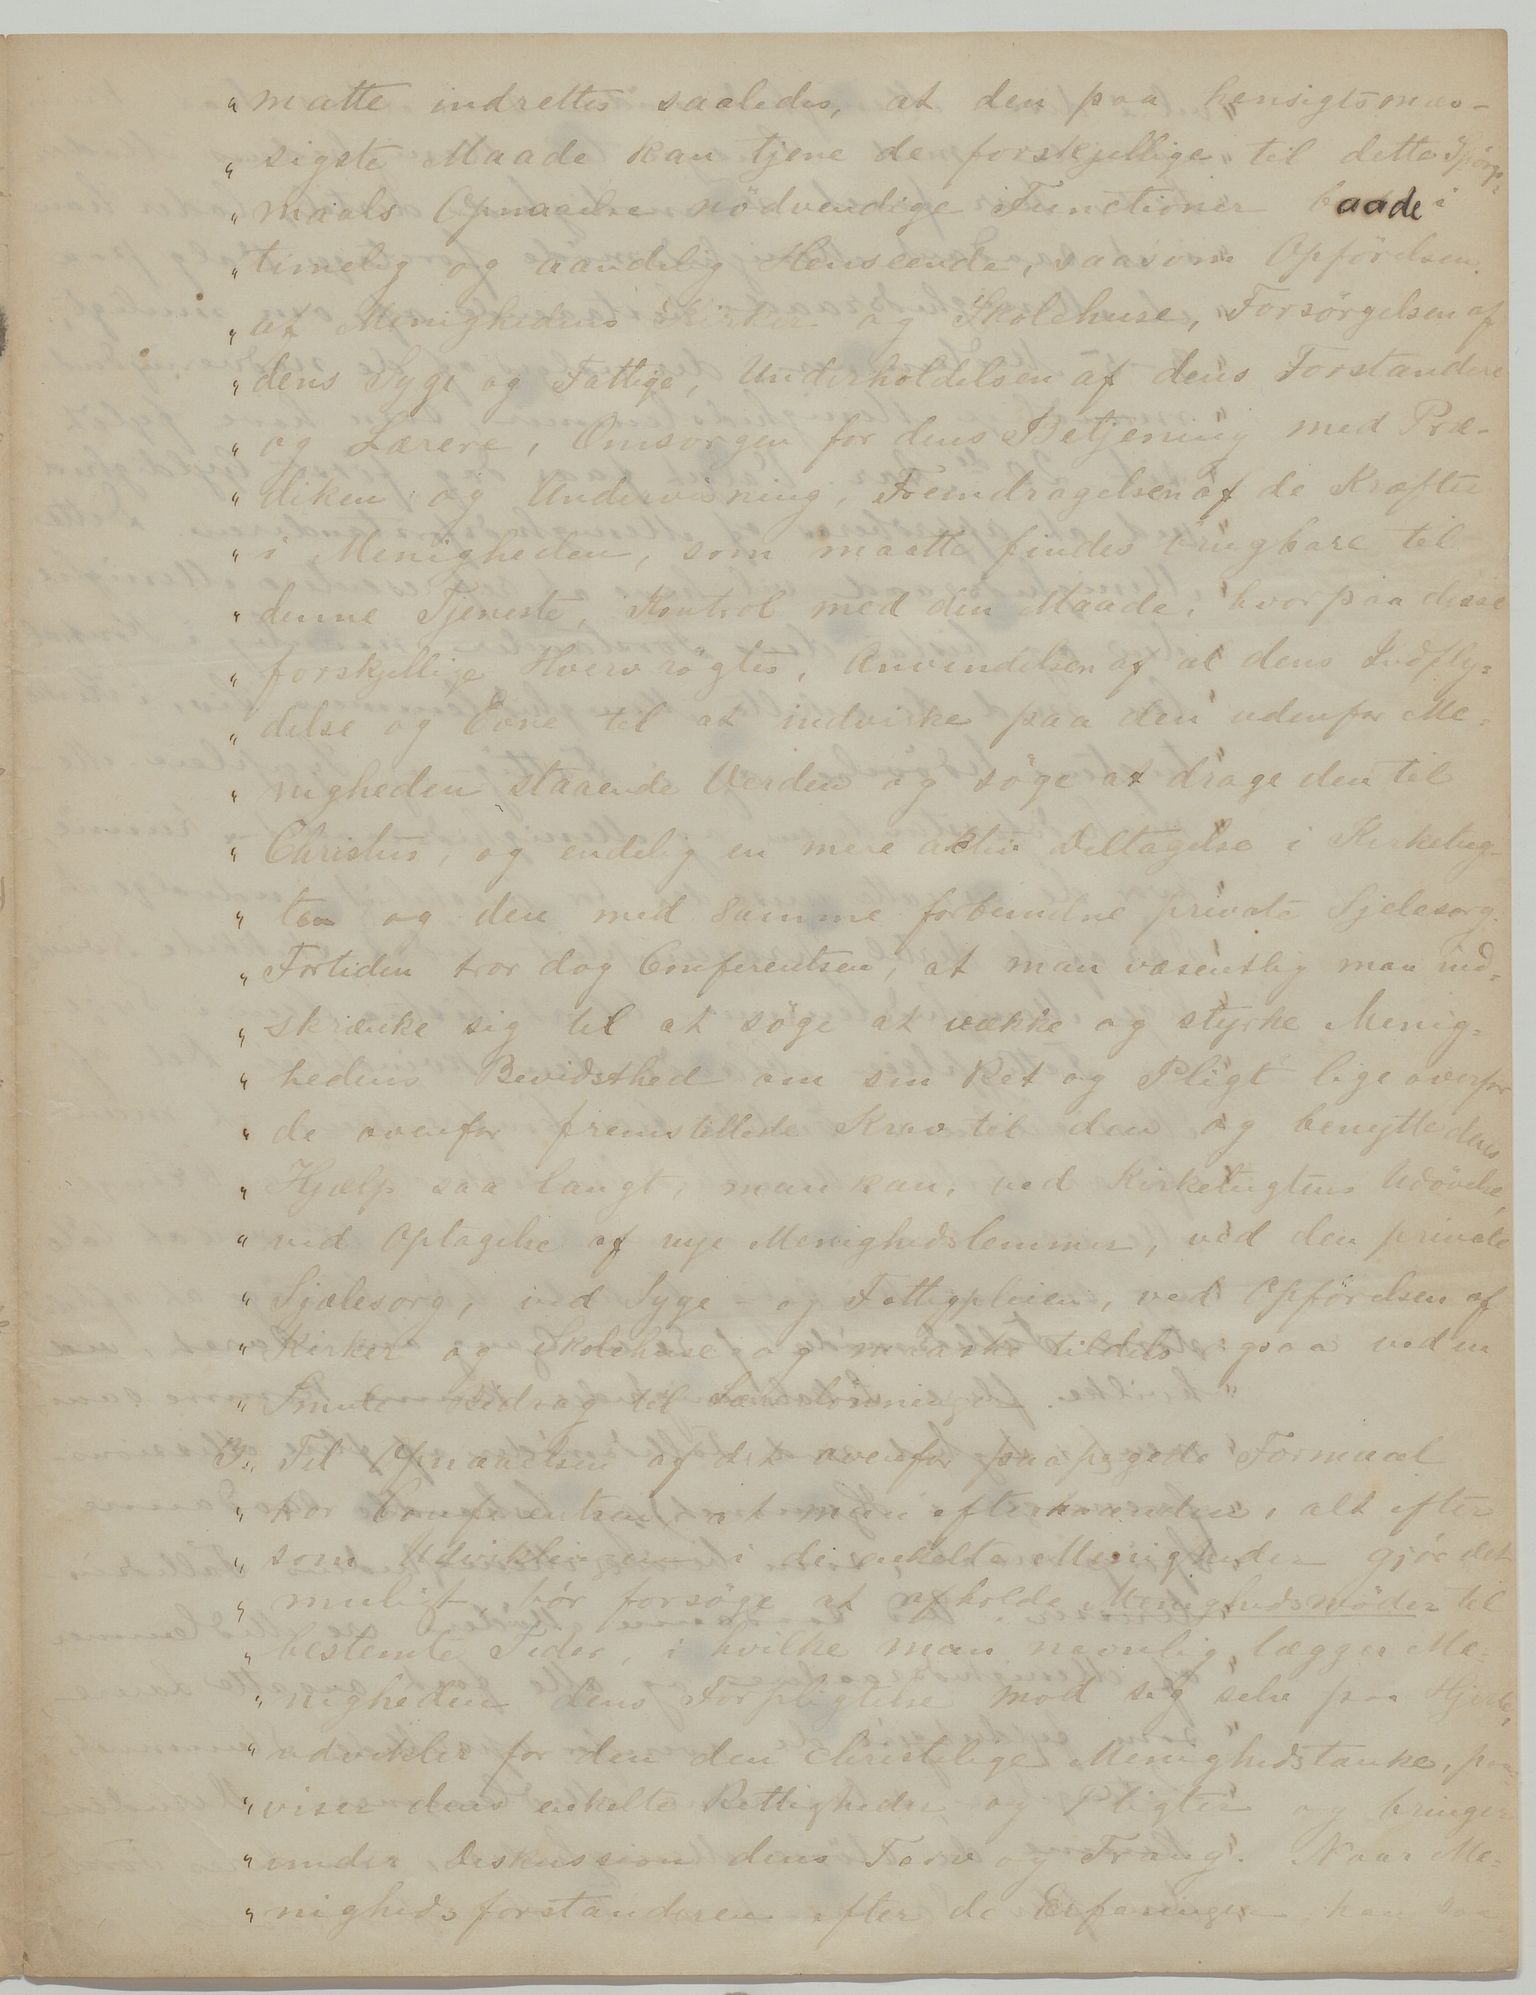 " maatte indrettes saaledes, at den paa hensigtsmæs-
" sigste Maade kan tjene de forskjellige til dette Spörgs-
" maals Opnaaelse nödvendige Functioner baade i
" timelig og aandelig Henseende, saasom Opförelsen
" af Menighedens Kirker og Skolehuse, Forsörgelsen af
" dens Syge og Fattige, Underholdelsen af dens Forstandere
" og Lærere, Omsorgen for dens Betjening med Præ-
" diken og Undervisning, Fremdragelsen af de Kræfter
" i Menigheden, som maatte findes brugbare til
" denne Tjeneste, Kontrol med den Maade, hvorpaa disse
" forskjellige Hverv rögtes, Anvendelsen af al dens Indfly-
" delse og Evne til at indvirke paa den udenfor Me-
" nigheden staaende Verden og söge at drage den til
" Christus, og endelig en mere aktiv Deltagelse i Kirketug-
" ten og den med samme forbundne private Sjelesorg.
" Fortiden tror dog Conferentsen, at man væsentlig maa ind-
" skrænke sig til at söge at vække og styrke Menig-
" hedens Bevidsthed om sin Ret og Pligt lige overfor
" de ovenfor fremstillede Krav til den og benytte dens
" Hjælp saa langt, man kan, ved Kirketugtens Udövelse,
" ved Optagelse af nye Menighedslemmer, ved den private
" Sjælesorg, ved Syge- og Fattigpleien, ved Opförelsen af
" Kirker og Skolehuse og maaske tildels ogsaa ved en
" Smule Bidrag til Lærerlönningen. "
3. " Til Opnaaelsen af det ovenfor paapegede Formaal
" tror Conferentsen, at man efterhaanden, alt efter
" som Udviklingen i de enkelte Menigheder gjör det
" muligt, bör forsöge at afholde Menighedsmöder til
" bestemte Tider, i hvilke man navnlig lægger Me-
" nigheden dens Forpligtelse mod sig selv paa Hjerte,
" udvikler for den den christelige Menighedstanke, paa-
" viser dens enkelte Rettigheder og Pligter og bringer
" under Diskussion dens Tarv og Trang. Naar Me-
" nighedsforstanderen efter de Erfaringer, han